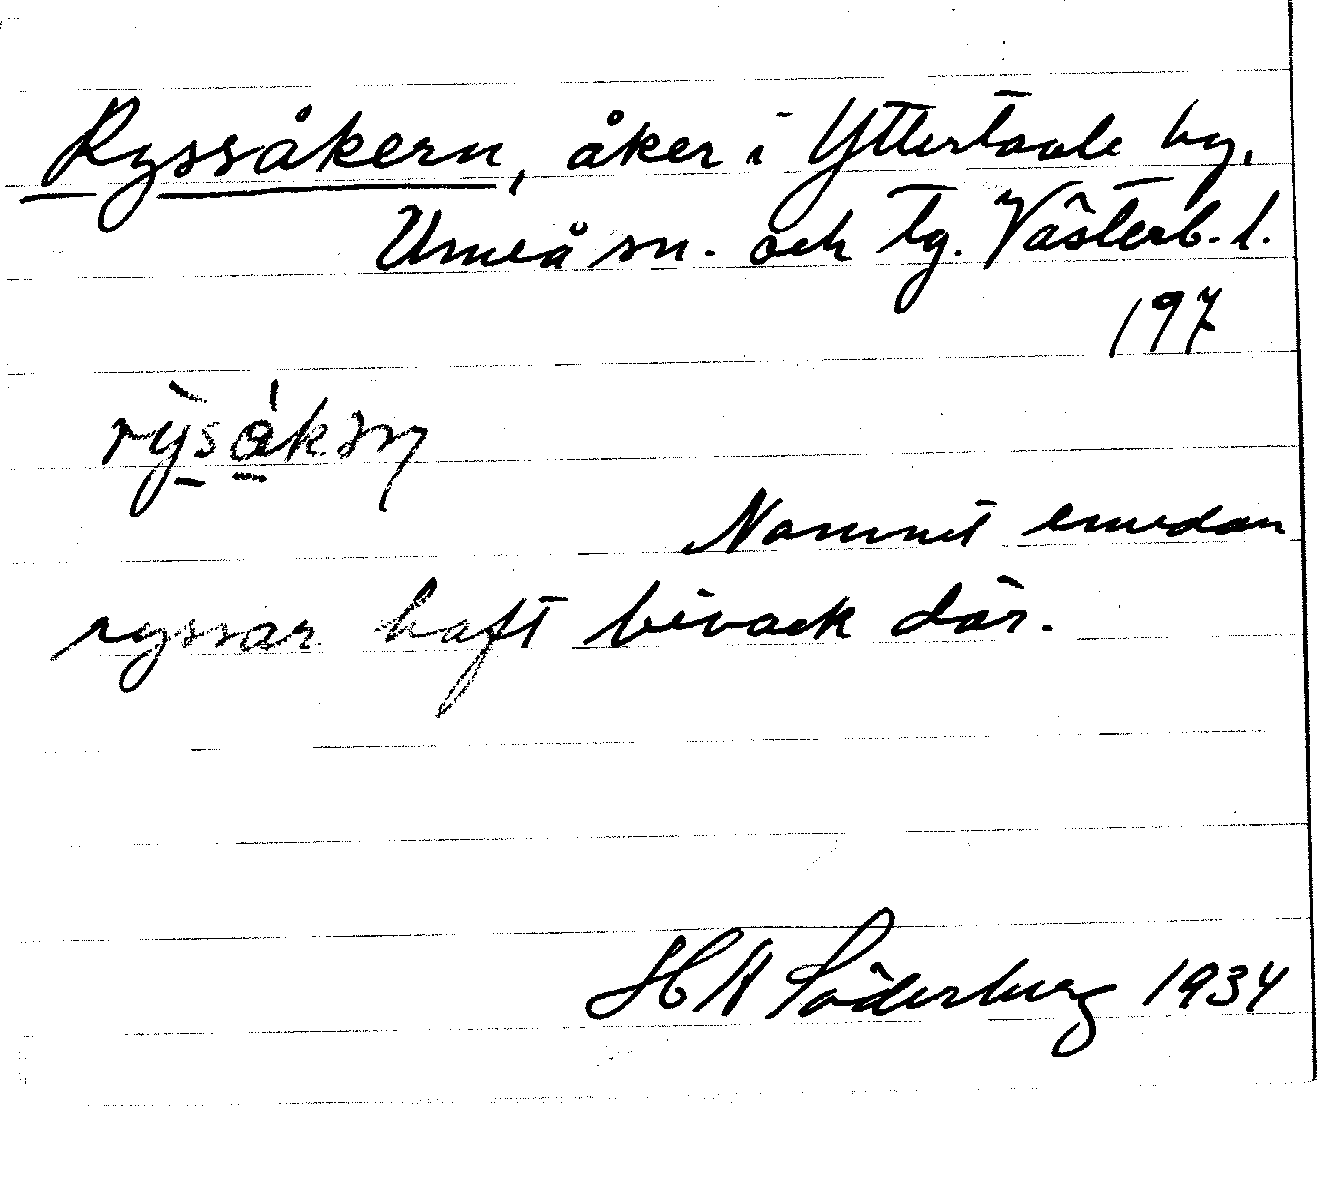 Ryssåkern, åker i Yttertavle by.
Umeå sn. och tg. Västerb. l.
197
Namnet emedan
ryssar haft bivack där.
H A Söderberg 1934